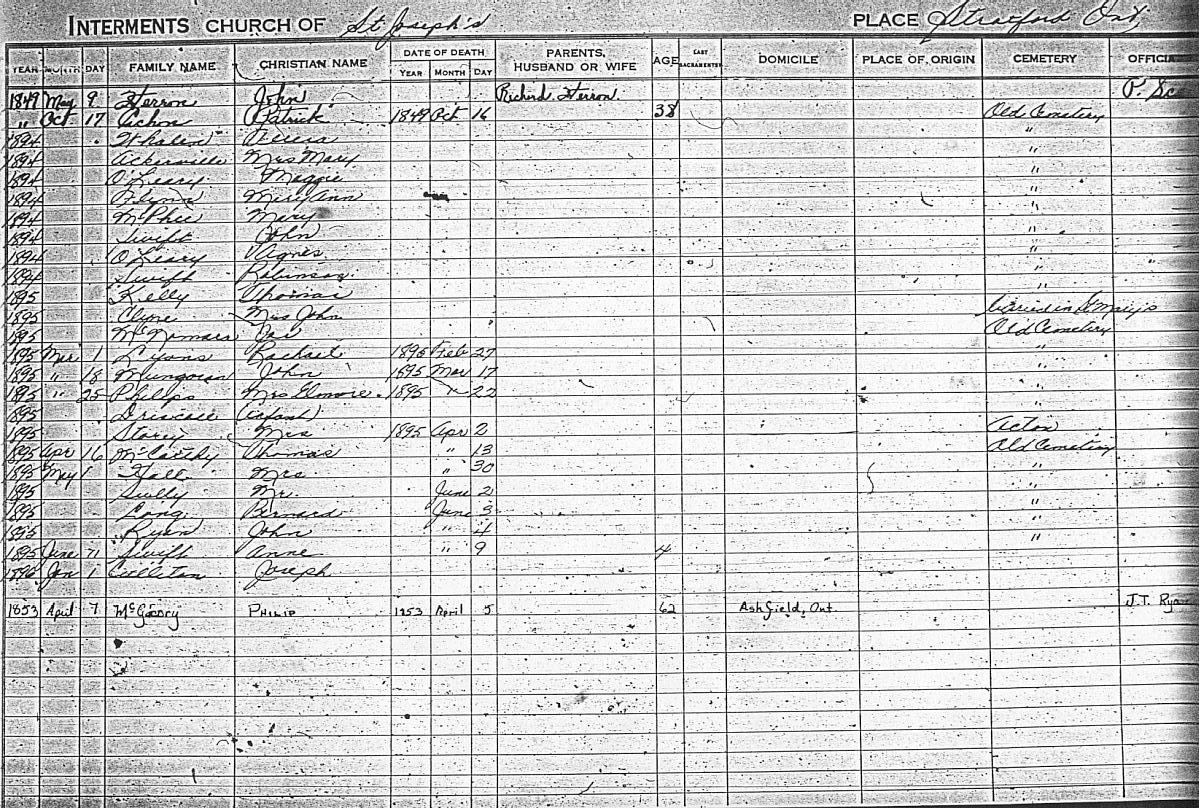 INTERMENTS CHURCH OF St Joseph's PLACE Stratford Ont.
YEAR MONTH DAY FAMILY NAME CHRISTIAN NAME DATE OF DEATH YEAR MONTH DAY PARENTS, HUSBAND OR WIFE AGE LAST SACRAMENTS DOMICILE PLACE OF ORIGIN CEMETERY OFFICIA
1849 May 9 Herron John Richard Herron. P.
" Oct 17 Patrick 1849 Oct 16 38 Old Cemetery
1894 Whalen "
1894 Mrs Mary "
1894 O'Leary Maggie "
1894 Flynn Mary Ann "
1894 McPhee Mary "
1894 Swift John "
1894 O'Leary Agnes "
1894 Swift Robinson "
1895 Kelly Thomas "
1895 Clyne Mrs John buried in St Mary's
1895 McNamara Old Cemetery
1895 Mar 1 Lyons Rachael 1895 Feb 27 "
1895 " 18 John 1895 Mar 17 "
1895 " 25 Phelps Mrs Elmore 1895 " 22 "
1895 Driscoll (infant) "
1895 Storey Mrs 1895 Apr 2 Acton
1895 Apr 16 McCarthy Thomas " 13 Old Cemetery
1895 May 1 Hall Mrs " 30 "
1895 Scully Mr. June 2 "
1895 Long Bernard June 3 "
1895 Ryan John " 4 "
1895 June 11 Swift Anne " 9 4
1896 Jan 1 Culleton Joseph
1853 April 7 McGoory PHILIP 1853 April 5 62 Ashfield, Ont. J.T. Ryan